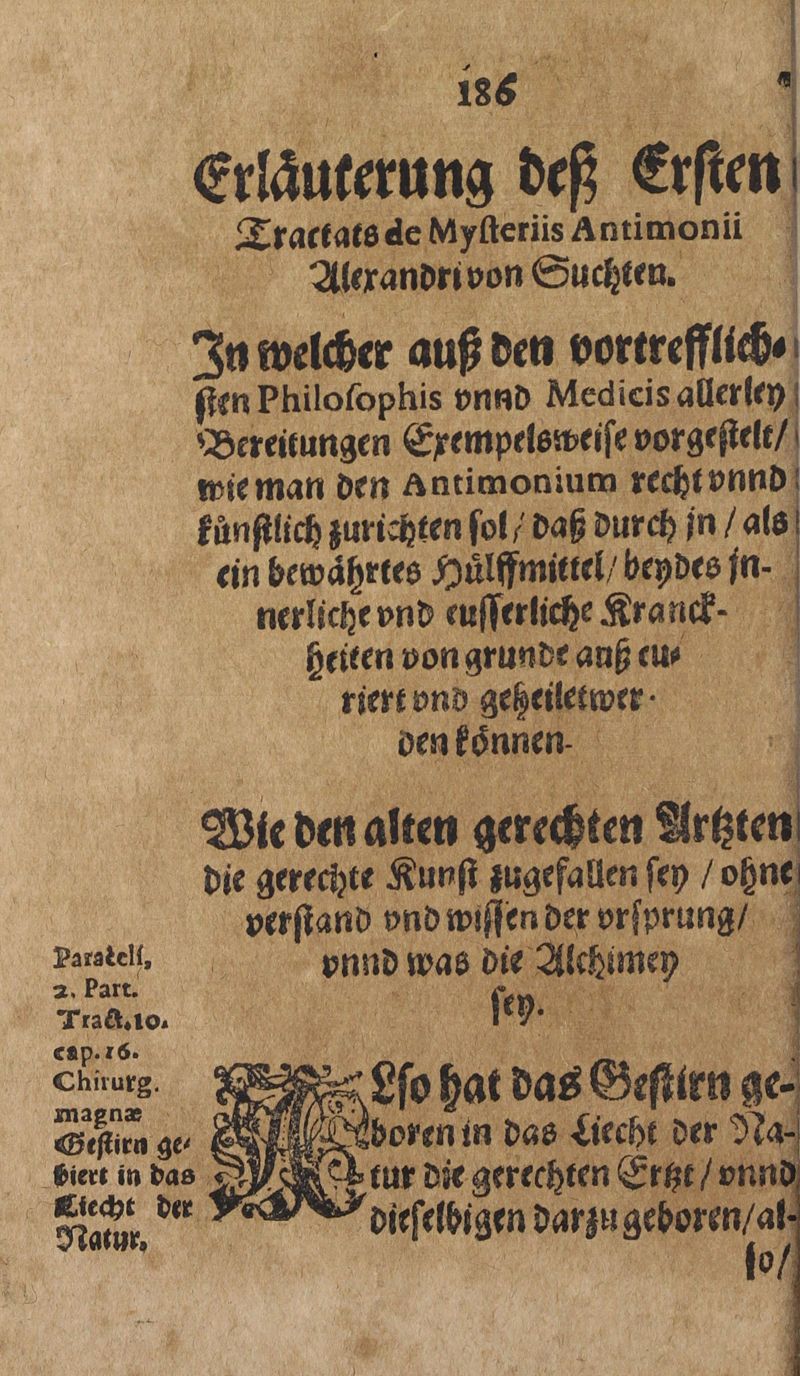 186
Erläuterung deß Ersten
Tractats de Mysteriis Antimonii
Alexandri von Suchten.
In welcher auß den vortrefflich-
sten Philosophis vnnd Medicis allerley
Bereitungen Exempelsweise vorgestelt/
wie man den Antimonium recht vnnd
künstlich zurichten sol/ daß durch jn / als
ein bewährtes Hülffmittel/ beydes jn-
nerliche vnd eusserliche Kranck-
heiten von grunde auß cu-
riert vnd geheilet wer-
den können.
Wie den alten gerechten Artzten
die gerechte Kunst zugefallen sey / ohne
verstand vnd wissen der vrsprung/
vnnd was die Alchimey
sey.
Paracels,
2. Part.
Tract. 10.
cap. 16.
Chirurg.
magnæ
Gestirn ge-
biert in das
Liecht der
Natur.
ALso hat das Gestirn ge-
boren in das Liecht der Na-
tur die gerechten Ertzt / vnnd
dieselbigen darzu geboren/ al-
so/